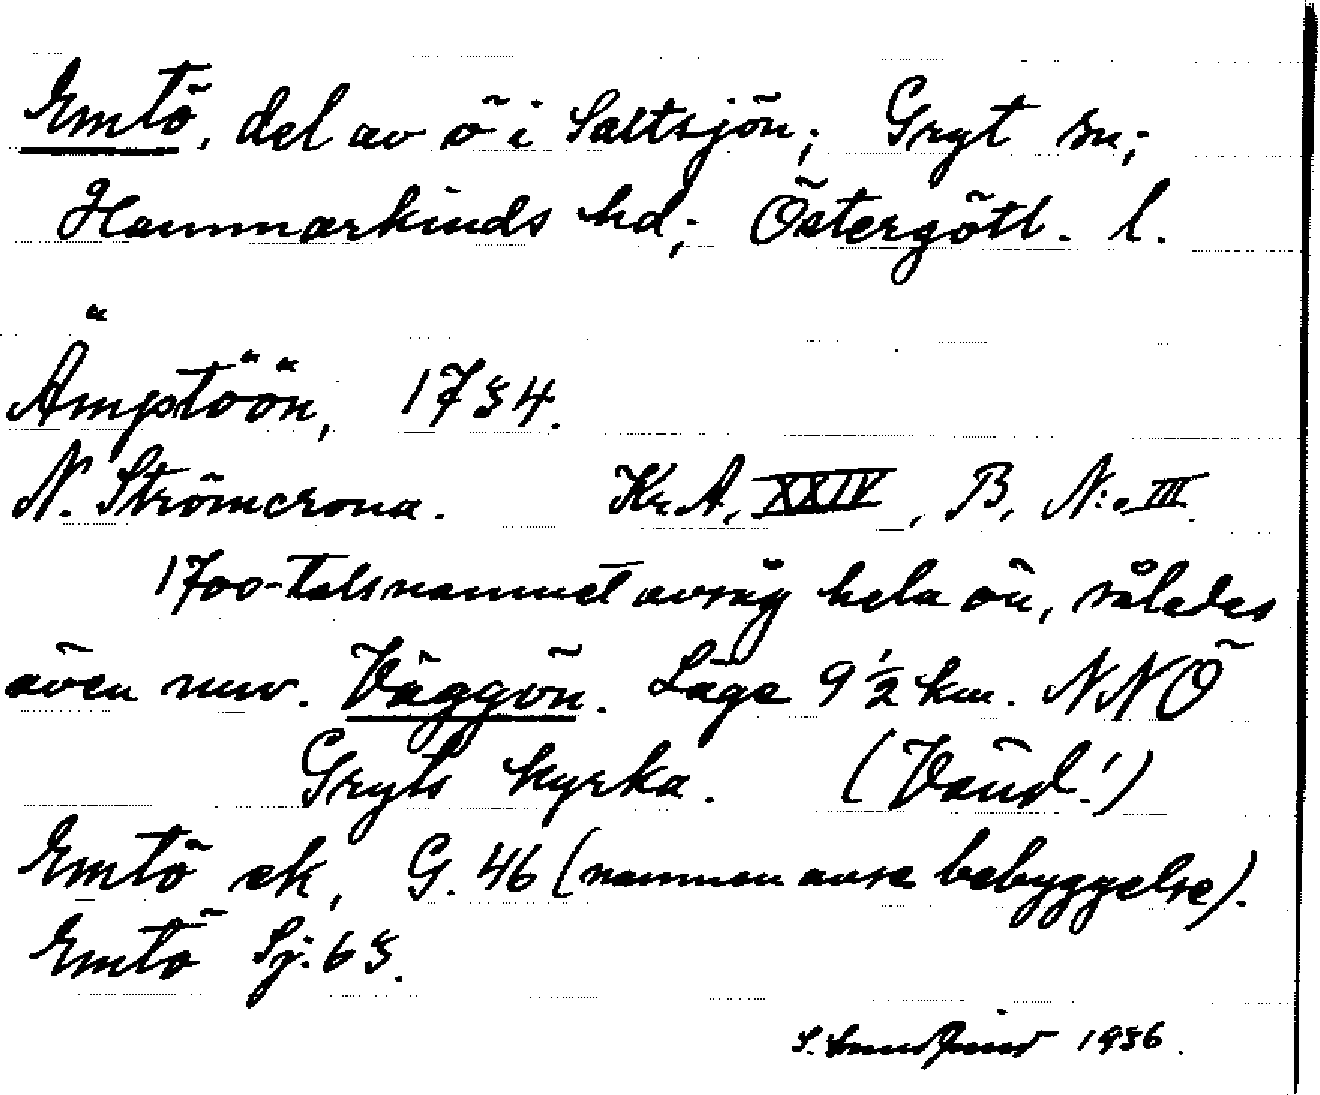 Emtö, del av ö i Saltsjön; Gryt sn;
Hammarkinds hd; Östergötl. l.
Ämptöön, 1734.
N. Strömcrona. Kr. A. XXIV, B, N:o III.
1700-talsnamnet avsåg hela ön, således
även nuv. Väggön. Läge 9 1/2 km. NNÖ
Gryts kyrka. (Vänd!)
Emtö ek, G. 46 (namnen avse bebyggelse).
Emtö Sj. 63.
S. 1936.